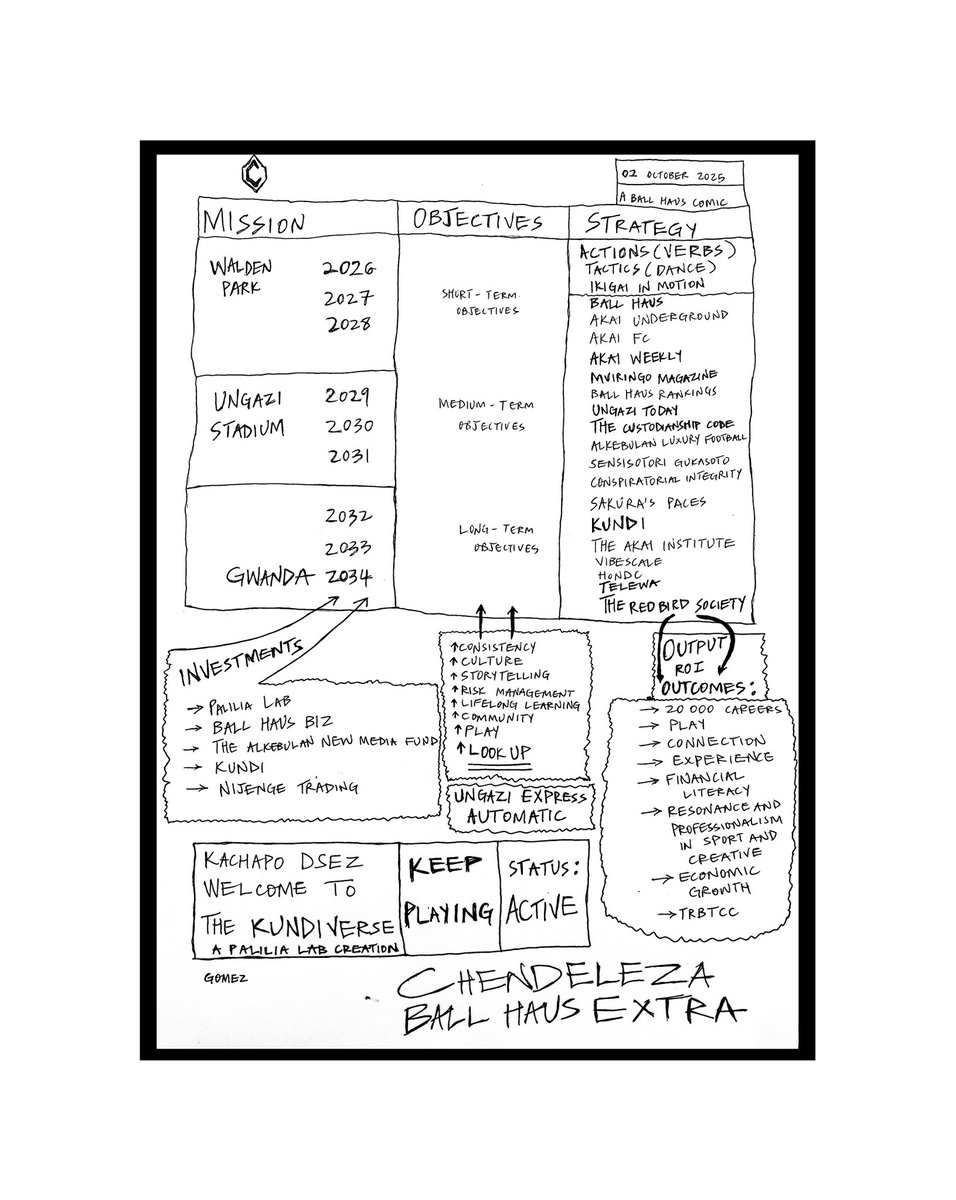 C
02 OCTOBER 2025
A BALL HAUS COMIC
MISSION
OBJECTIVES
STRATEGY
WALDEN PARK
2026
2027
2028
SHORT-TERM
OBJECTIVES
ACTIONS (VERBS)
TACTICS (DANCE)
IKIGAI IN MOTION
UNGAZI
STADIUM
2029
2030
2031
MEDIUM-TERM
OBJECTIVES
2032
2033
GWANDA 2034
LONG-TERM
OBJECTIVES
BALL HAUS
AKAI UNDERGROUND
AKAI FC
AKAI WEEKLY
MVIRINGO MAGAZINE
BALL HAUS RANKINGS
UNGAZI TODAY
THE CUSTODIANSHIP CODE
ALKEBULAN LUXURY FOOTBALL
SENSISOTORI GUKASOTO
CONSPIRATORIAL INTEGRITY
SAKURA'S PACES
KUNDI
THE AKAI INSTITUTE
VIBESCALE
HONDC
TELEWA
THE RED BIRD SOCIETY
INVESTMENTS
→ PALILIA LAB
→ BALL HAUS BIZ
→ THE ALKEBULAN NEW MEDIA FUND
→ KUNDI
→ NIJENGE TRADING
↑ CONSISTENCY
↑ CULTURE
↑ STORYTELLING
↑ RISK MANAGEMENT
↑ LIFELONG LEARNING
↑ COMMUNITY
↑ PLAY
↑ LOOK UP
UNGAZI EXPRESS
AUTOMATIC
OUTPUT
ROI
OUTCOMES:
→ 20 000 CAREERS
→ PLAY
→ CONNECTION
→ EXPERIENCE
→ FINANCIAL
LITERACY
→ RESONANCE AND
PROFESSIONALISM
IN SPORT AND
CREATIVE
→ ECONOMIC
GROWTH
→ TRBTCC
KACHAPO DSEZ
WELCOME TO
THE KUNDIVERSE
A PALILIA LAB CREATION
KEEP
PLAYING
STATUS:
ACTIVE
GOMEZ
CHENDELEZA
BALL HAUS EXTRA